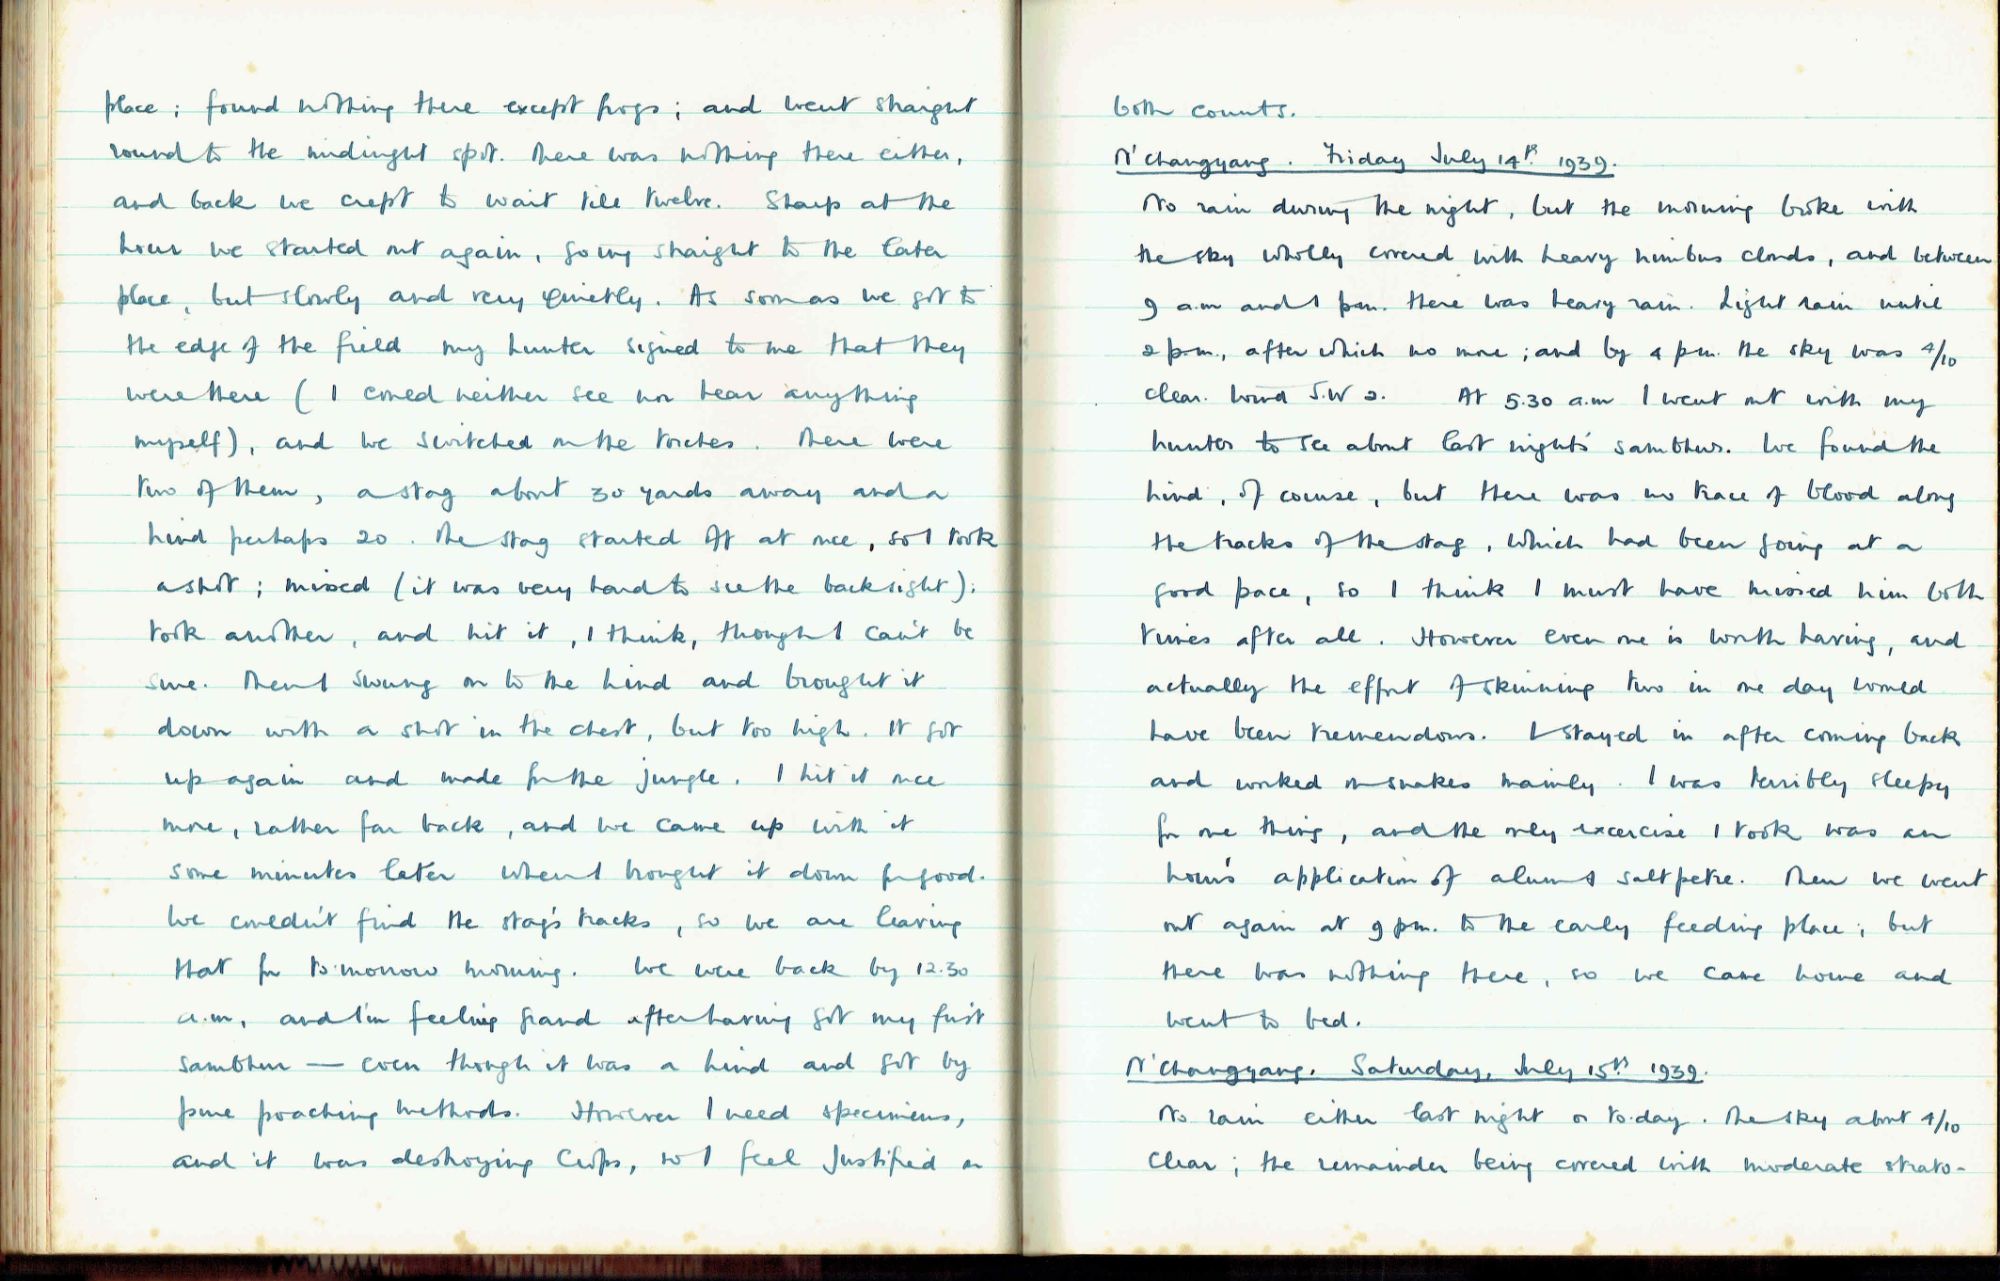 place; found nothing there except frogs; and went straight
round to the midnight spot. There was nothing there either,
and back we crept to wait till twelve. Sharp at the
hour we started out again, going straight to the later
place, but slowly and very quietly. As soon as we got to
the edge of the field my hunter signed to me that they
were there ( I could neither see nor hear anything
myself), and we switched on the torches. There were
two of them, a stag about 30 yards away and a
hind perhaps 20. The stag started off at once, so I took
a shot; missed (it was very hard to see the backsight);
took another, and hit it, I think, though I can't be
sure. Then I swung on to the hind and brought it
down with a shot in the chest, but too high. It got
up again and made for the jungle. I hit it once
more, rather far back, and we came up with it
some minutes later when I brought it down for good.
We couldn't find the stag's tracks, so we are leaving
that for to-morrow morning. We were back by 12.30
a.m, and I'm feeling grand after having got my first
sambhur — even though it was a hind and got by
pure poaching methods. However I need specimens,
and it was destroying crops, so I feel justified on
both counts.
N'Changyang. Friday July 14th 1939.
No rain during the night, but the morning broke with
the sky wholly covered with heavy nimbus clouds, and between
9 a.m and 1 p.m. there was heavy rain. Light rain until
2 p.m., after which no more; and by 4 p.m. the sky was 4/10
clear. Wind S.W 2. At 5.30 a.m I went out with my
hunter to see about last night's sambhur. We found the
hind, of course, but there was no trace of blood along
the tracks of the stag, which had been going at a
good pace, so I think I must have missed him both
times after all. However even one is worth having, and
actually the effort of skinning two in one day would
have been tremendous. I stayed in after coming back
and worked on snakes mainly. I was terribly sleepy
for one thing, and the only excercise I took was an
hour's application of alum & saltpetre. Then we went
out again at 9 p.m. to the early feeding place; but
there was nothing there, so we came home and
went to bed.
N'Changyang. Saturday, July 15th 1939.
No rain either last night or to-day. The sky about 4/10
clear; the remainder being covered with moderate strato-